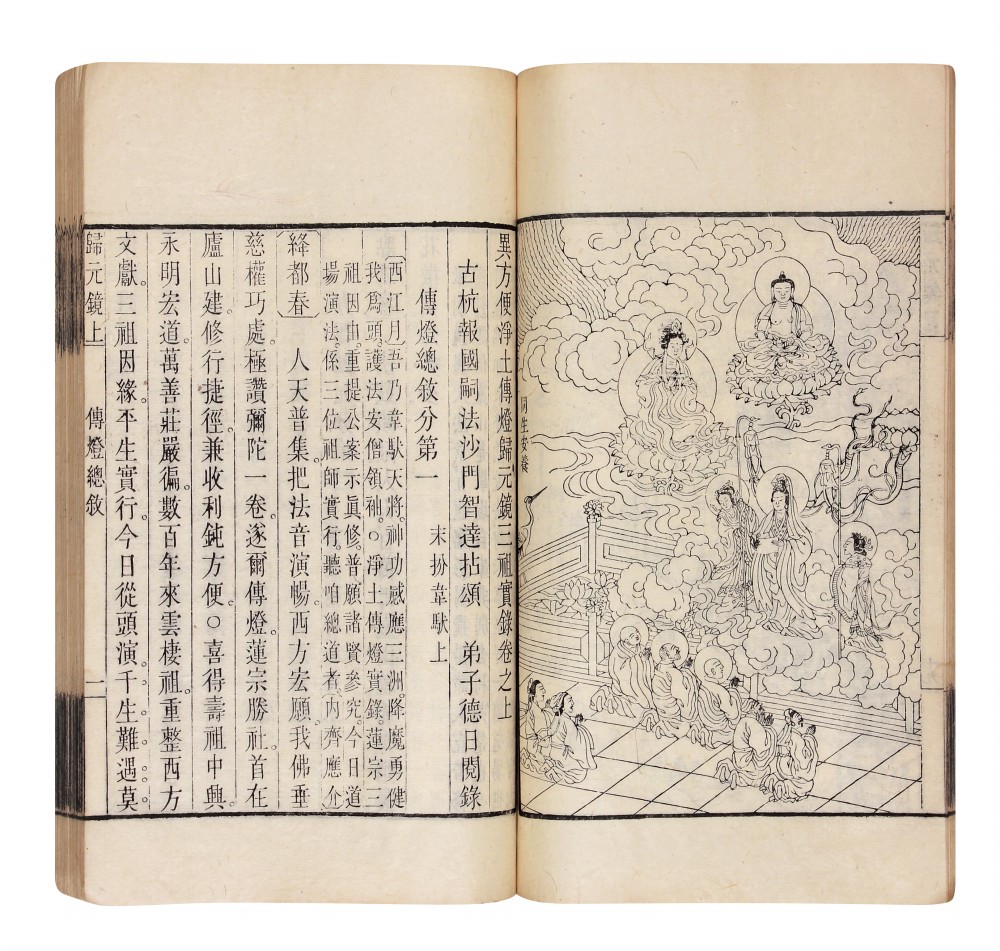 同生安養
異方便淨土傳燈歸元鏡三祖實錄卷之上
古杭報國嗣法沙門智達拈頌　弟子德日閱錄
傳燈總敘分第一　末扮韋馱上
〔西江月〕吾乃韋馱天將。神功感應三洲。降魔勇健
我爲頭。護法安僧領袖。○淨土傳燈實錄。蓮宗三
祖因由。重提公案示眞修。普願諸賢參究。今日道
場演法。係三位祖師實行。聽咱總道者。內齊應介
〔絳都春〕人天普集。把法音演暢。西方宏願。我佛垂
慈權巧處。極讚彌陀一卷。遂爾傳燈。蓮宗勝社。首在
廬山建。修行捷徑。兼收利鈍方便。○喜得壽祖中興。
永明宏道。萬善莊嚴徧。數百年來雲棲祖。重整西方
文獻。三祖因緣。平生實行。今日從頭演。千生難遇莫
歸元鏡上　傳燈總敘　一